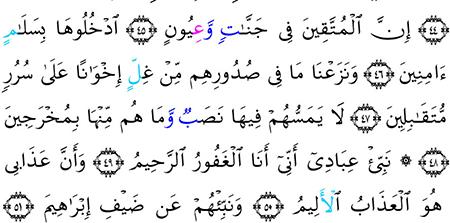 ﴿٤٤﴾ إِنَّ ٱلْمُتَّقِينَ فِى جَنَّـٰتٍ وَعُيُونٍ ﴿٤٥﴾ ٱدْخُلُوهَا بِسَلَـٰمٍ
ءَامِنِينَ ﴿٤٦﴾ وَنَزَعْنَا مَا فِى صُدُورِهِم مِّنْ غِلٍّ إِخْوَٰنًا عَلَىٰ سُرُرٍ
مُّتَقَـٰبِلِينَ ﴿٤٧﴾ لَا يَمَسُّهُمْ فِيهَا نَصَبٌ وَمَا هُم مِّنْهَا بِمُخْرَجِينَ
﴿٤٨﴾ ۞ نَبِّئْ عِبَادِىٓ أَنِّىٓ أَنَا ٱلْغَفُورُ ٱلرَّحِيمُ ﴿٤٩﴾ وَأَنَّ عَذَابِى
هُوَ ٱلْعَذَابُ ٱلْأَلِيمُ ﴿٥٠﴾ وَنَبِّئْهُمْ عَن ضَيْفِ إِبْرَٰهِيمَ ﴿٥١﴾